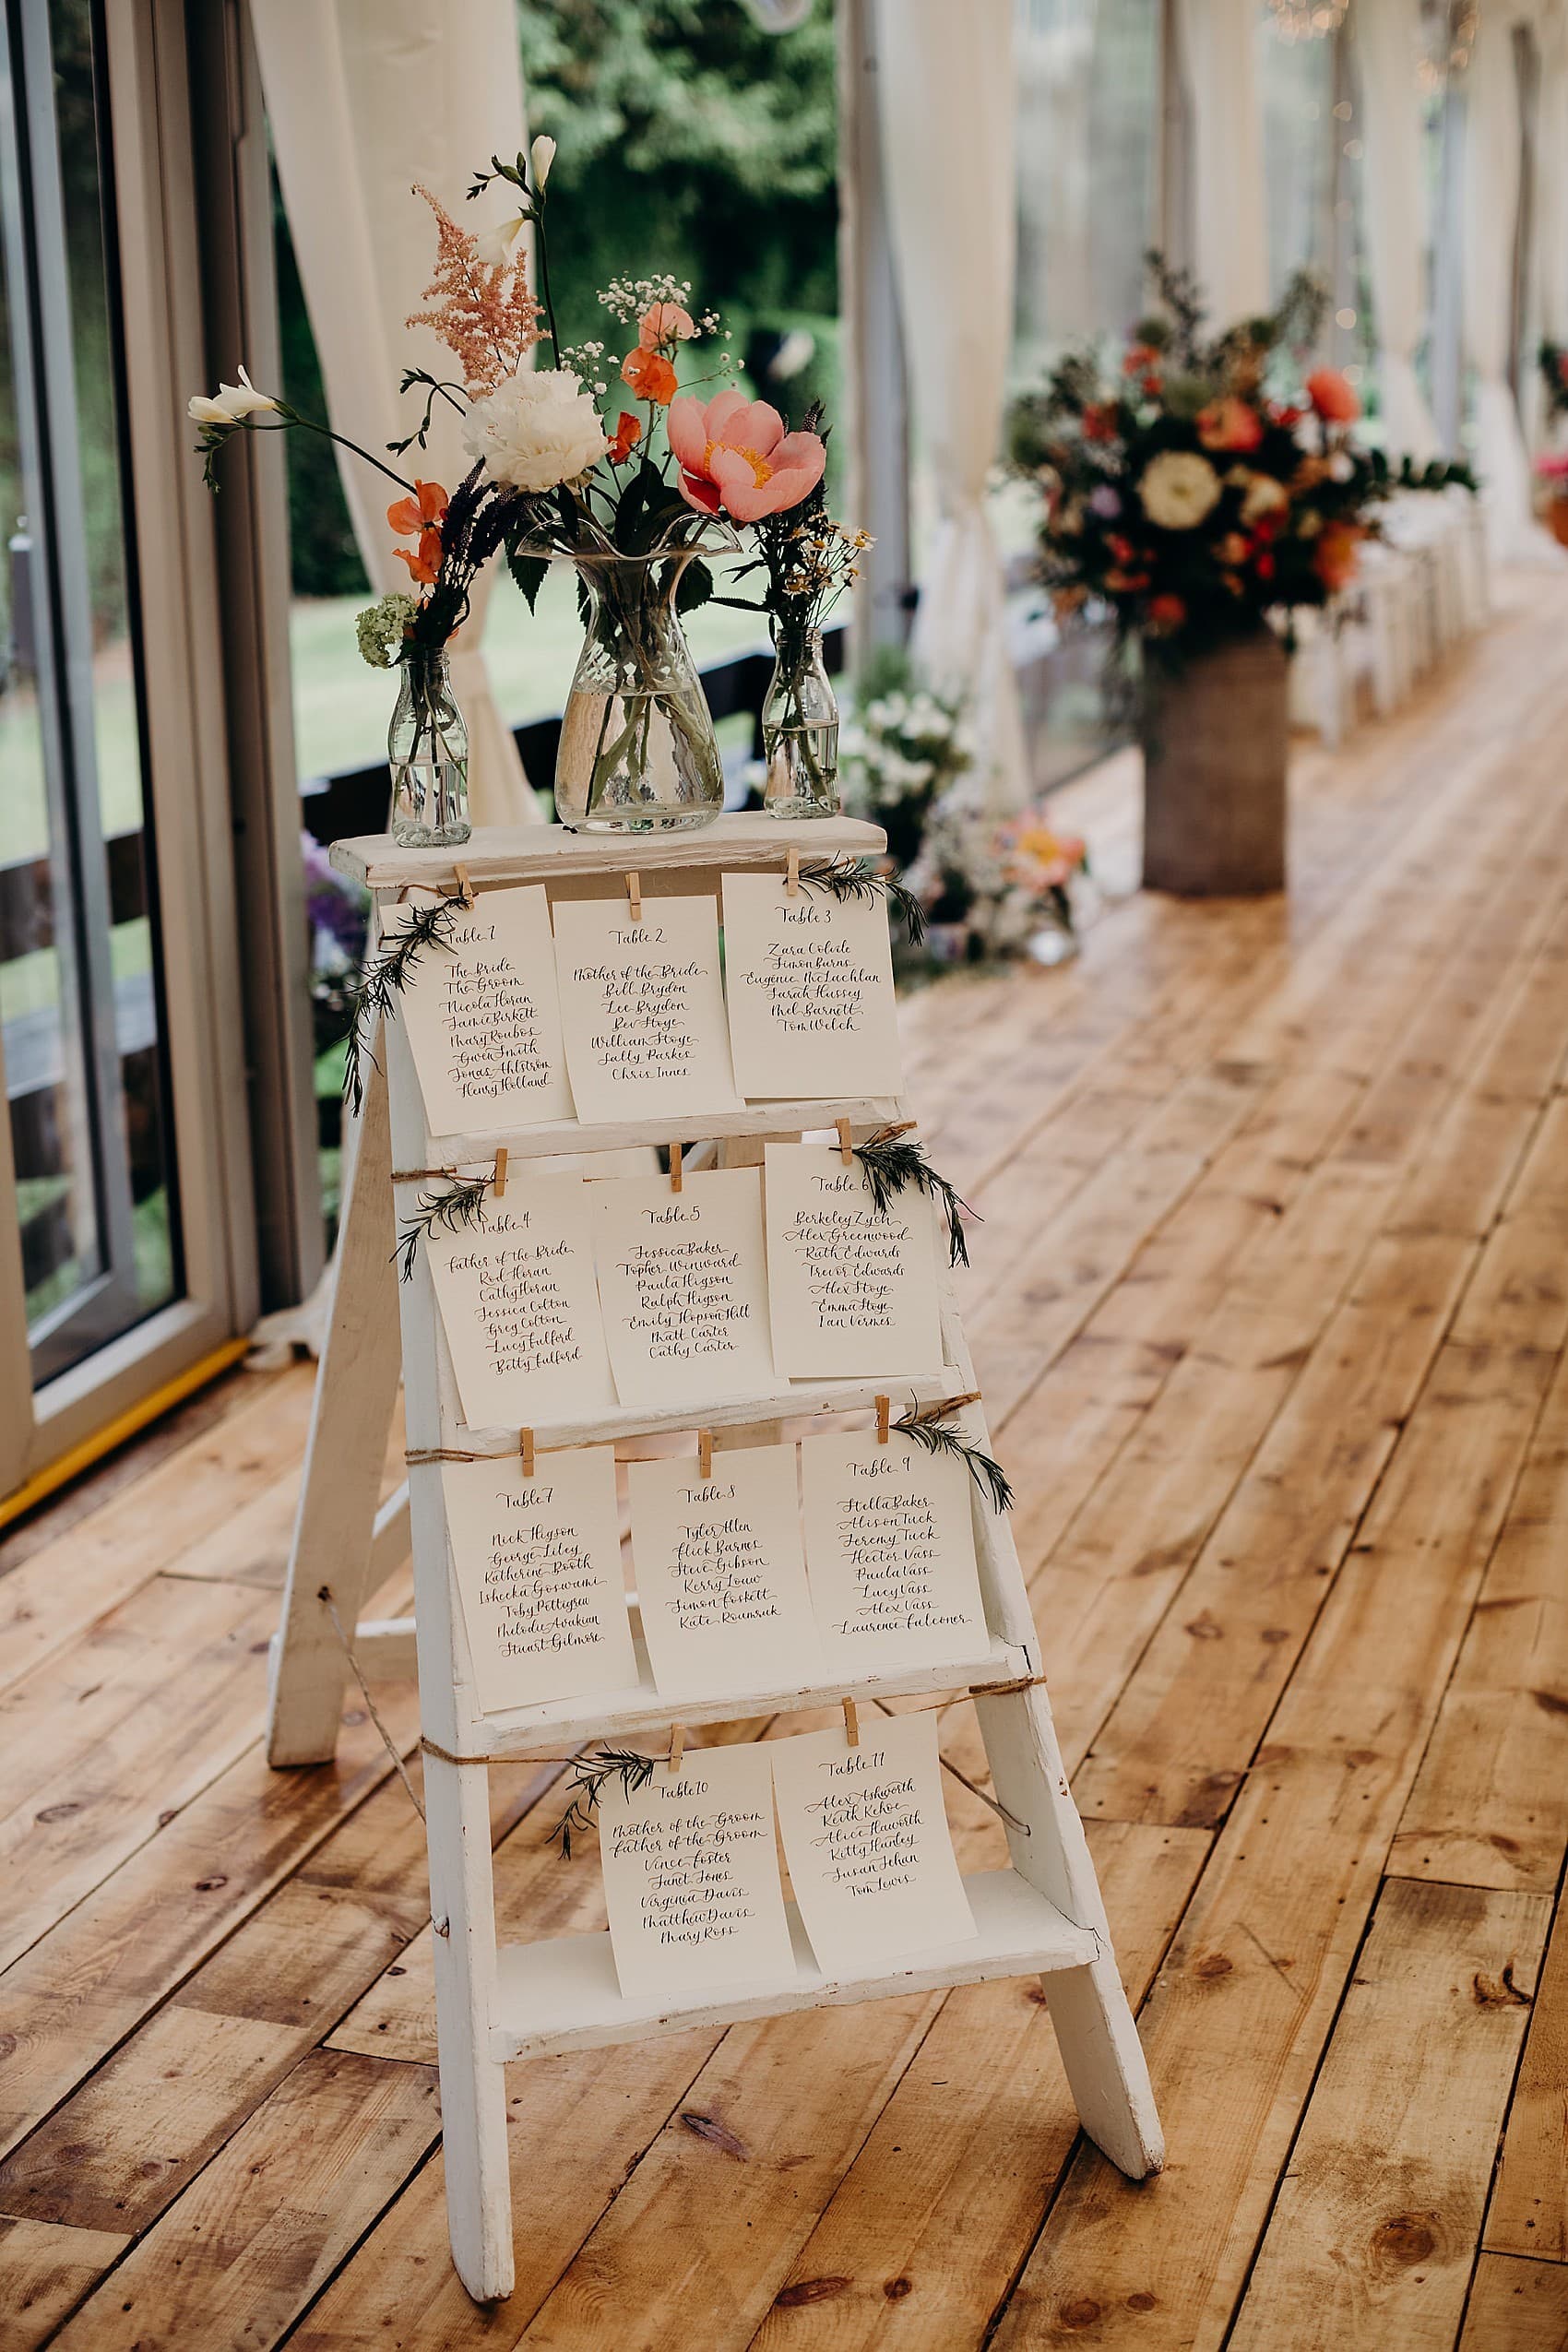 Table 1
The Bride
The Groom
Nicola Horan
Jamie Birkett
Mary Roubos
Gwen Smith
Jonas Ahlström
Henry Holland
Table 2
Mother of the Bride
Bill Brydon
Lee Brydon
Bev Stoye
William Stoye
Sally Parkes
Chris Innes
Table 3
Zara Colvile
Simon Burns
Eugénie McLachlan
Sarah Hussey
Mel Barnett
Tom Welch
Table 4
Father of the Bride
Rod Horan
Cathy Horan
Jessica Colton
Greg Colton
Lucy Fulford
Betty Fulford
Table 5
Jessica Baker
Topher Winward
Paula Higson
Ralph Higson
Emily Hopson Hill
Matt Carter
Cathy Carter
Table 6
Berkeley Zych
Alex Greenwood
Ruth Edwards
Trevor Edwards
Alex Stoye
Emma Stoye
Ian Vermes
Table 7
Nick Higson
George Liley
Katherine Booth
Isheeka Goswami
Toby Pettigrew
Melodie Avakian
Stuart Gilmore
Table 8
Tyler Allen
Flick Barnes
Steve Gibson
Kerry Louw
Simon Foskett
Kate
Table 9
Stella Baker
Alison Tuck
Jeremy Tuck
Hector Vass
Paula Vass
Lucy Vass
Alex Vass
Laurence Falconer
Table 10
Mother of the Groom
Father of the Groom
Vince Foster
Janet Jones
Virginia Davis
Matthew Davis
Mary Ross
Table 11
Alex Ashworth
Keith Kehoe
Alice Haworth
Kitty Hanley
Susan Jehan
Tom Lewis